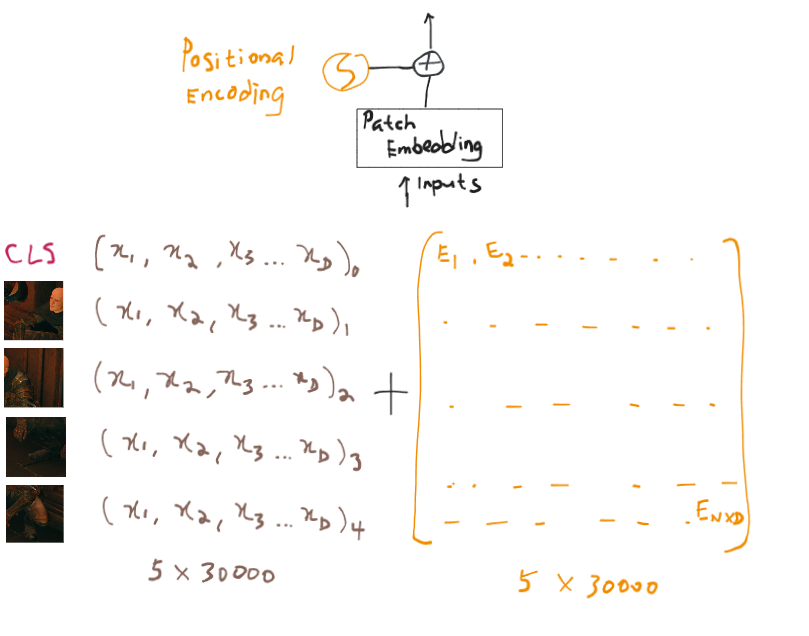 Positional
Encoding
S
+
Patch
Embedding
Inputs
CLS (x1, x2, x3 ... xD)0
(x1, x2, x3 ... xD)1
(x1, x2, x3 ... xD)2
(x1, x2, x3 ... xD)3
(x1, x2, x3 ... xD)4
5 × 30000
+
E1, E2
ENXD
5 × 30000